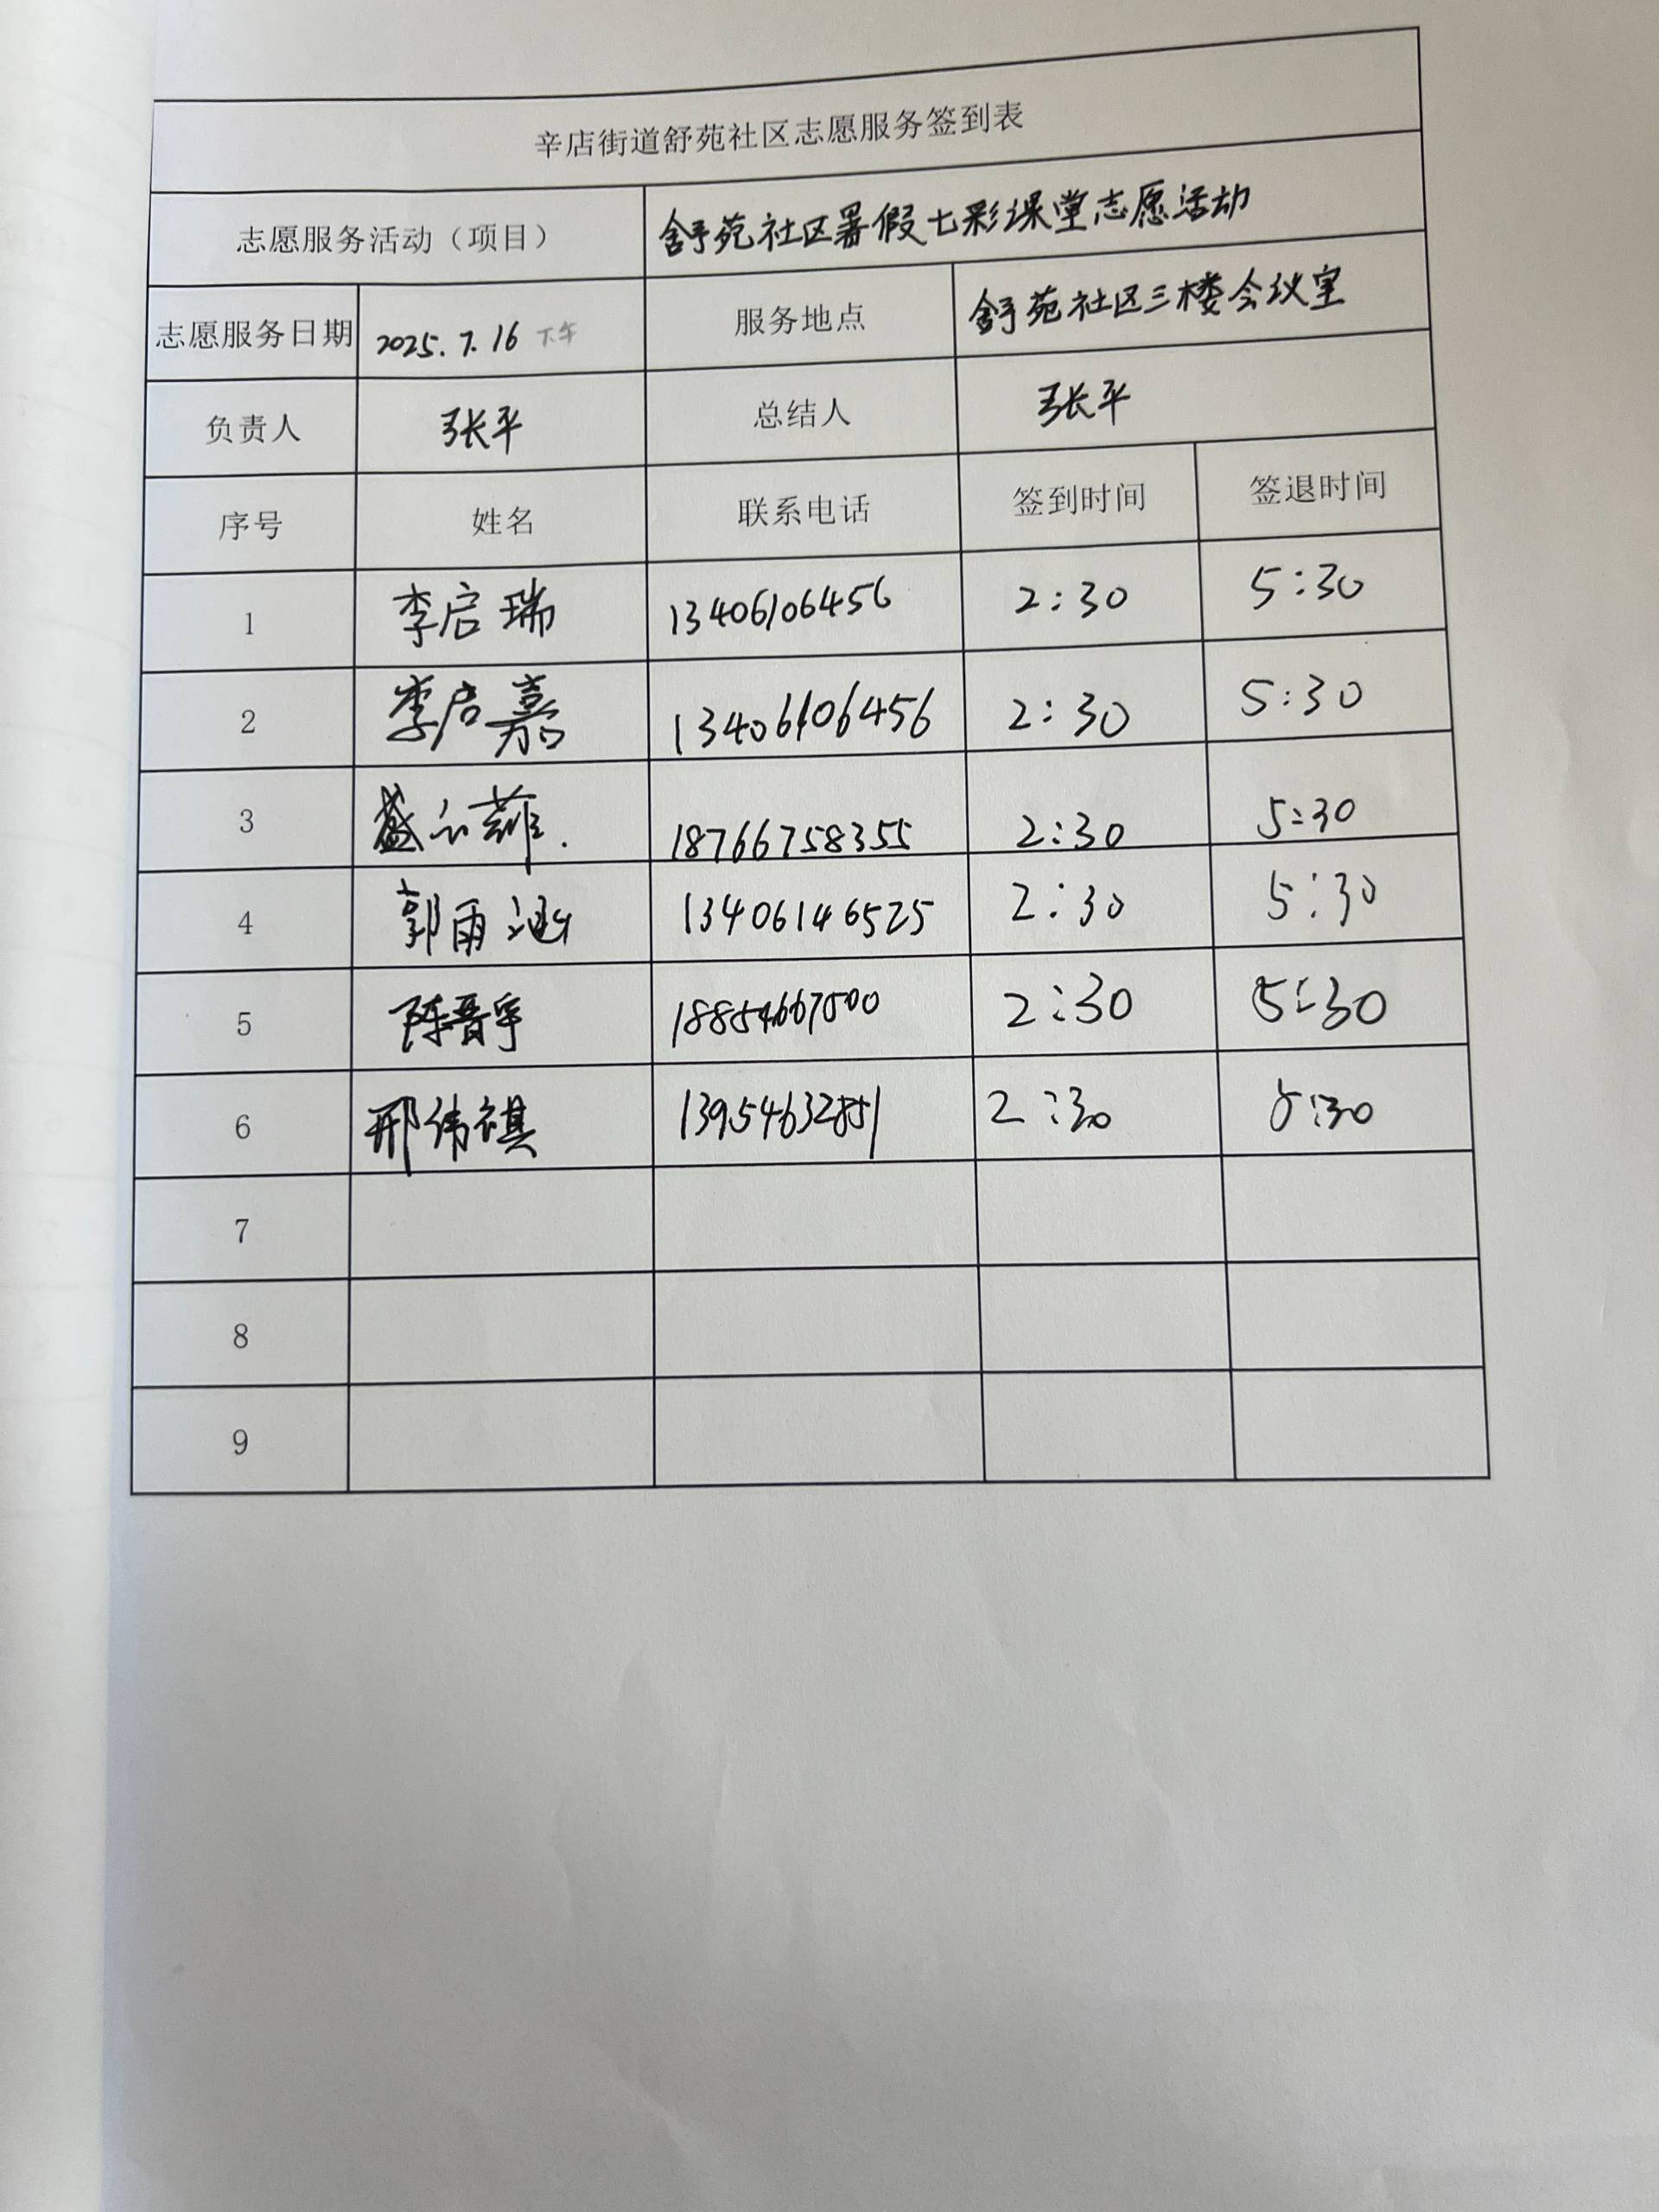 辛店街道舒苑社区志愿服务签到表
志愿服务活动（项目） 舒苑社区暑假七彩课堂志愿活动
志愿服务日期 2025.7.16 下午 服务地点 舒苑社区三楼会议室
负责人 张平 总结人 张平
序号 姓名 联系电话 签到时间 签退时间
1 李启瑞 13406106456 2:30 5:30
2 李启嘉 13406106456 2:30 5:30
3 18766758355 2:30 5:30
4 郭雨涵 13406146525 2:30 5:30
5 陈晋宇 18854667500 2:30 5:30
6 邢伟祺 13954632851 2:30 5:30
7
8
9